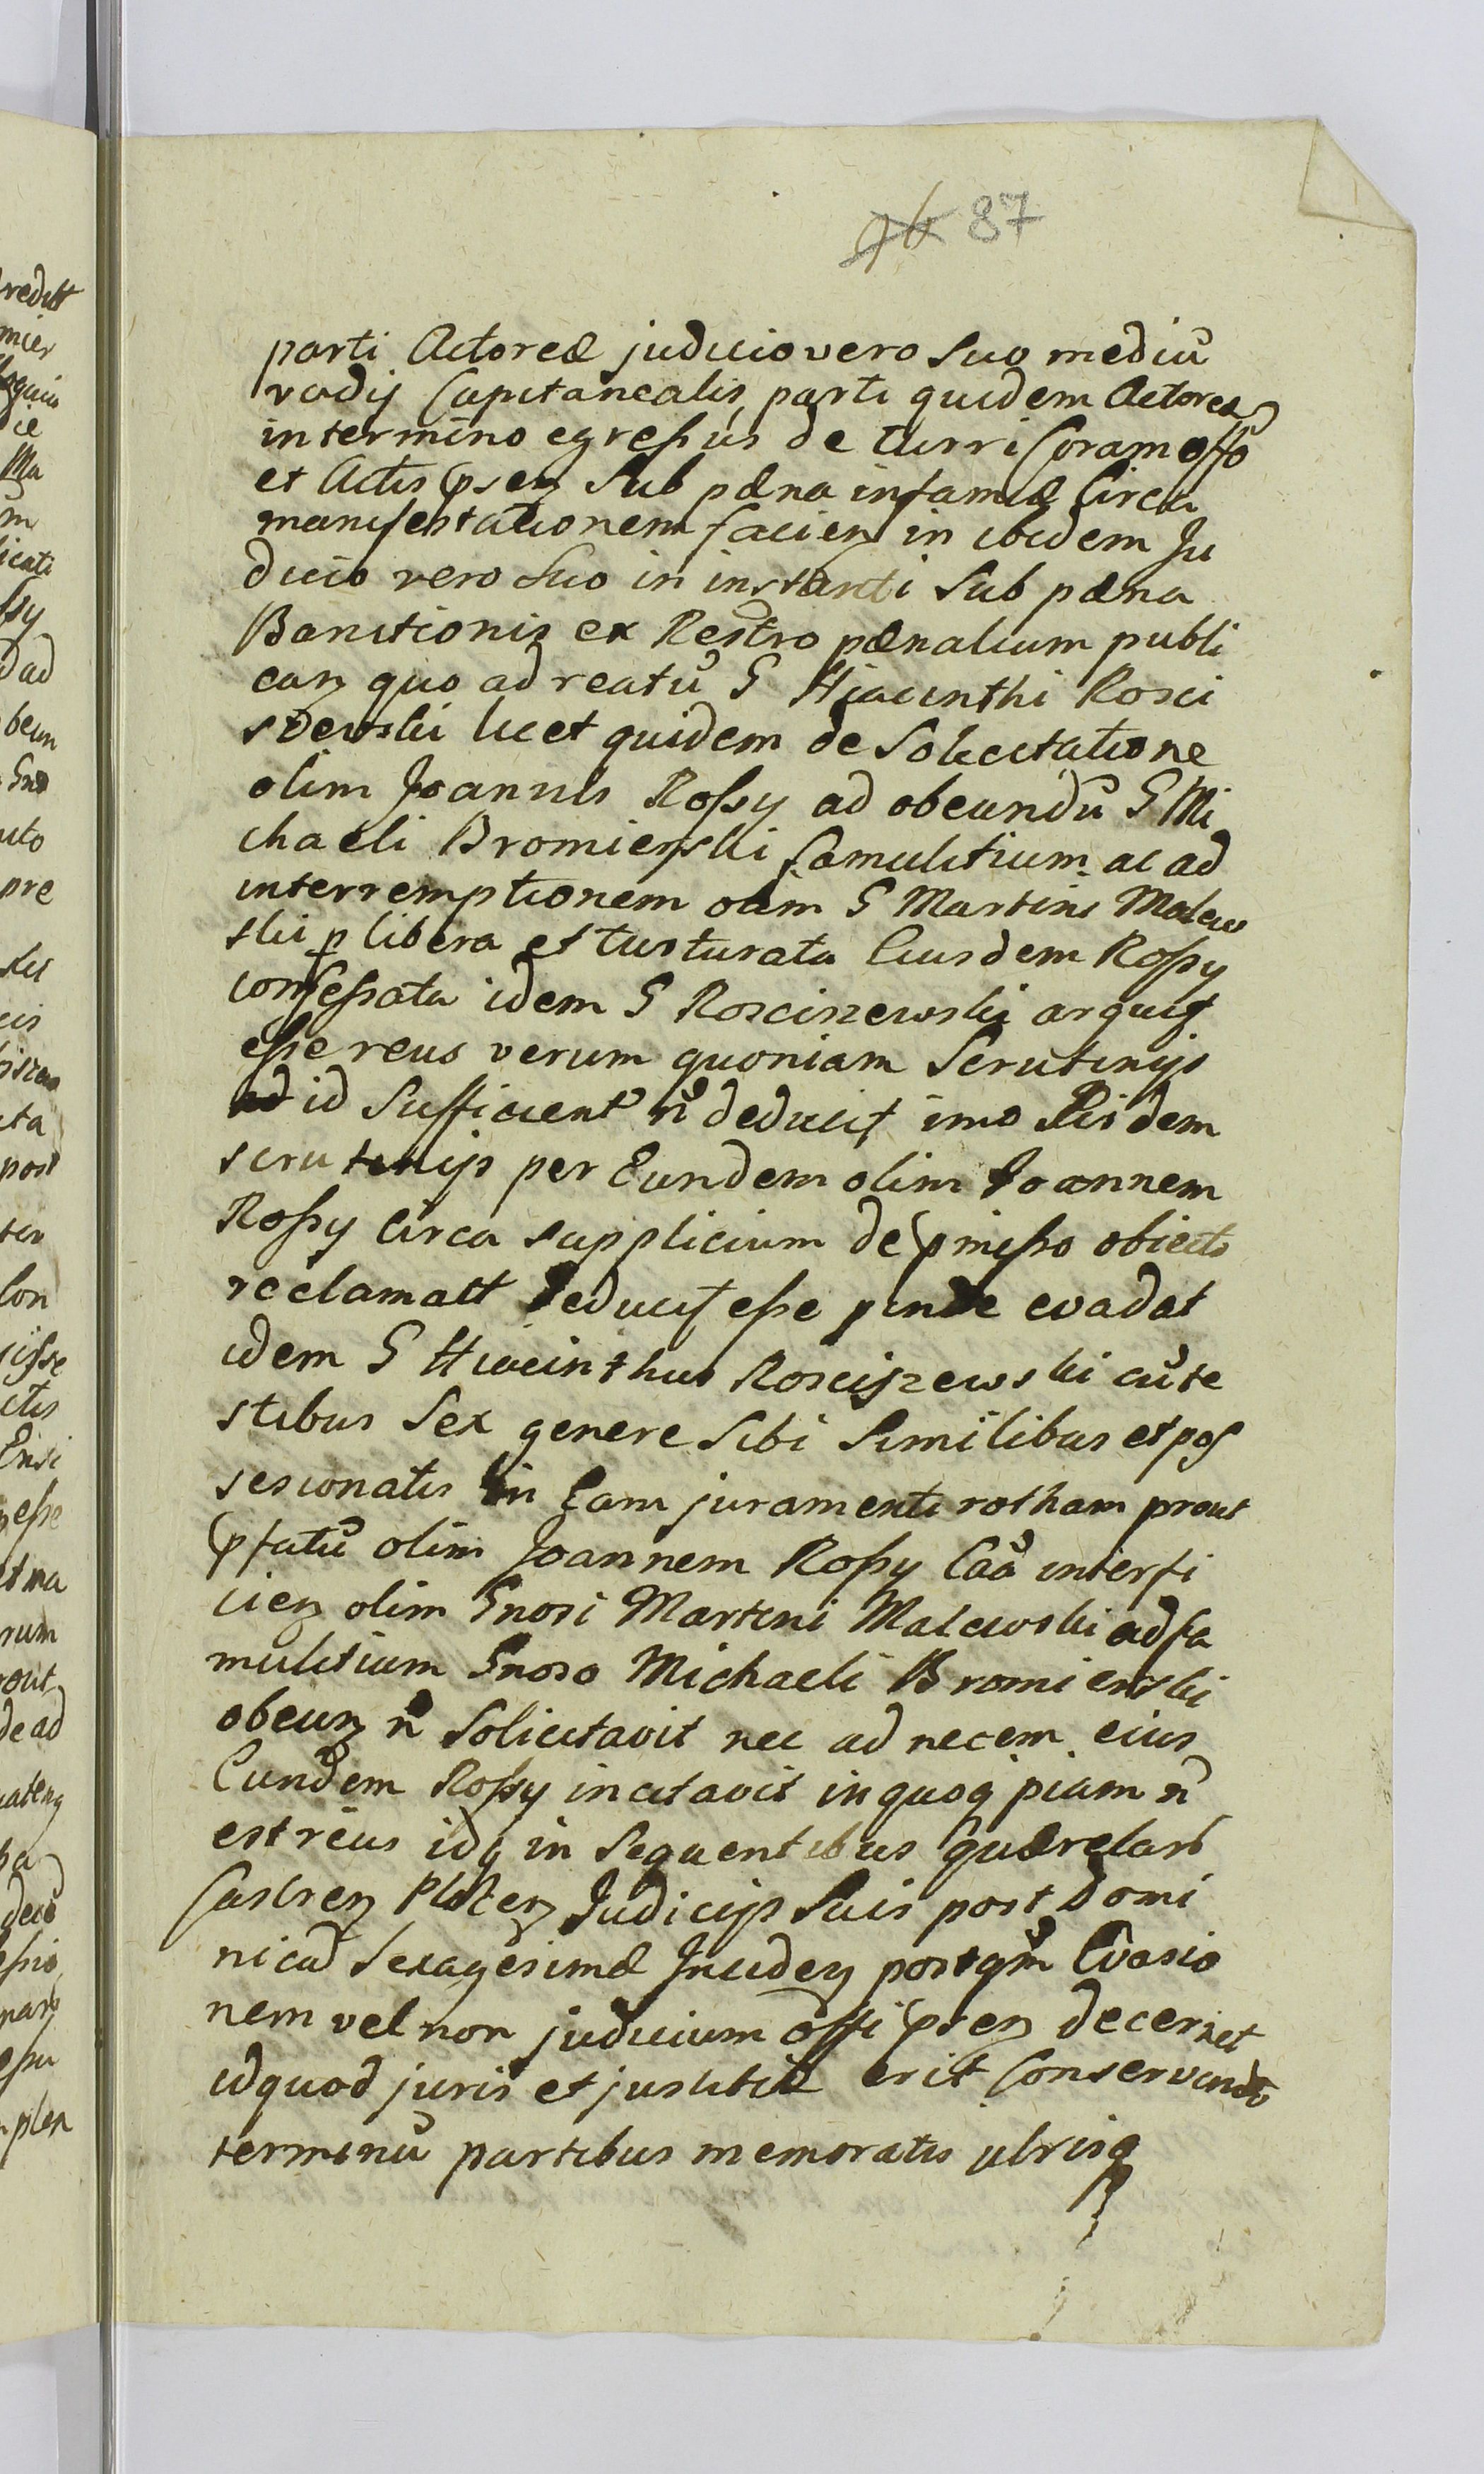 96 87
parti Actoreæ judicio vero suo mediũ
vadij Capitanealis, parti quidem Actoreæ
in termino egressus de turri Coram offo
et Actis psen sub pæna infamiæ Circa
manifestationem facien in ibidem Ju
dicio vero suo in instanti sub pæna
Banitionis ex Restro pænalium publi
can quo ad reatũ G Hiacinthi Rosci
szewski licet quidem de Solicitatione
olim Joannis Rossy ad obeundũ G Mi
chaeli Bromierski famulitium ac ad
interremptionem olim G Martini Malew
ski p libera et tusturata Eiusdem Rossy
confessata idem G Rosciszewski arguit
esse reus verum quoniam Scrutinijs
id Sufficient ñ deducit imo Iisdem
scrutinijs per Eundem olim Joannem
Rossy circa supplicium de pmisso obiecto
reclamatt deducit esse pinde evadat
idem G Hiacinthus Rosciszewski cũ te
stibus Sex genere Sibi Similibus et pos
sesionatis in Eam juramenti rotham prout
pfatũ olim Joannem Rossy Caã interfi
cien olim Gnosi Martini Malewski ad fa
mulitium Gnoso Michaeli Bromierski
obeun ñ Solicitavit nec ad necem eius
Eundem Rossy incitavit in quoq piam ñ
est reus idq in Sequentibus Querelarũ
Castren Plocen Judicijs Suis post Domi
nicã Sexagesimæ Inciden postqm̃ Evasio
nem vel non judicium offi psen decernet
id quod juris et justitiæ erit Conservando
terminũ partibus memoratis utrisq